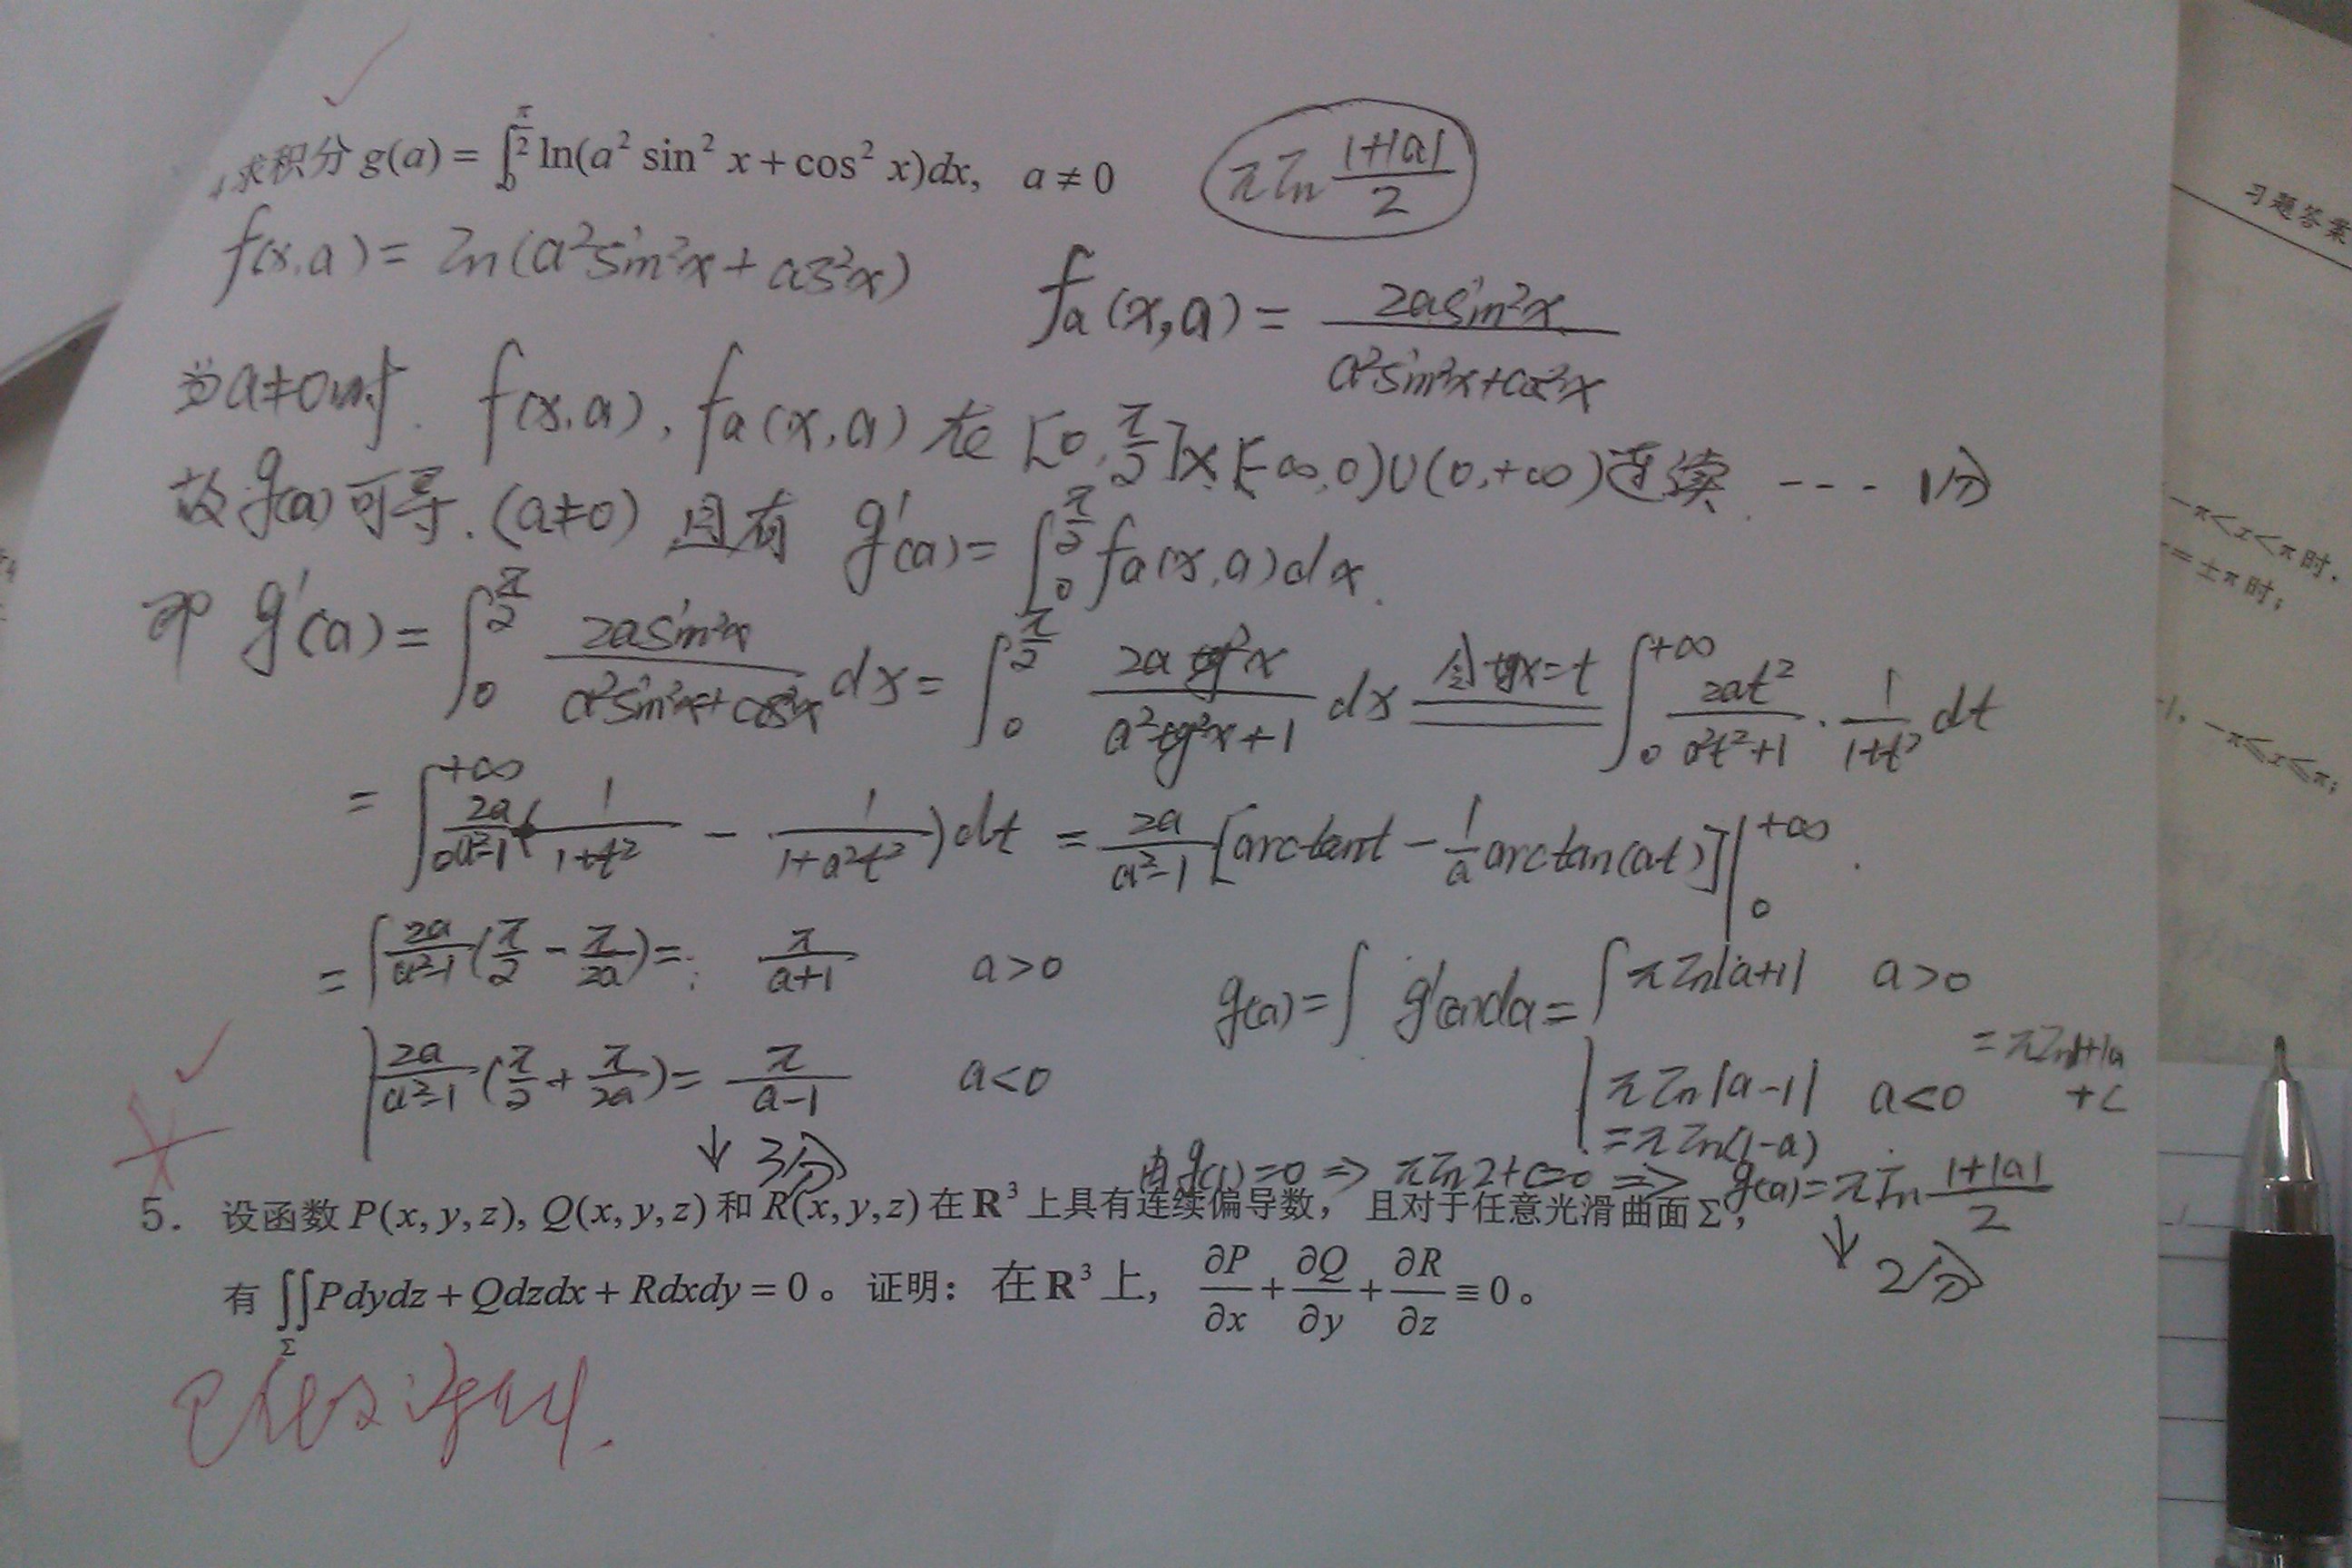 求积分 g(a) = ∫_0^{π/2} ln(a² sin² x + cos² x)dx, a ≠ 0
π ln (1+|a|)/2
f(x,a) = ln(a² sin²x + cos²x)
f_a(x,a) = 2a sin²x / (a² sin²x + cos²x)
当a≠0时. f(x,a), f_a(x,a) 在 [0, π/2]×(-∞,0)∪(0,+∞)连续. --- 1分
故g(a)可导.(a≠0) 且有 g'(a) = ∫_0^{π/2} f_a(x,a)dx.
即 g'(a) = ∫_0^{π/2} 2a sin²x / (a² sin²x + cos²x) dx = ∫_0^{π/2} 2a tg²x / (a² tg²x + 1) dx 令tgx=t ∫_0^{+∞} 2at² / (a²t²+1) · 1/(1+t²) dt
= ∫_0^{+∞} 2a/(a²-1) (1/(1+t²) - 1/(1+a²t²))dt = 2a/(a²-1) [arctant - 1/a arctan(at)] |_0^{+∞}.
= { 2a/(a²-1) (π/2 - π/2a) = π/(a+1) a>0
2a/(a²-1) (π/2 + π/2a) = π/(a-1) a<0
↓ 3分
g(a) = ∫ g'(a)da = { π ln|a+1| a>0
π ln|a-1| a<0
= π ln(1-a)
= π ln|1+|a
+c
由g(1)=0 ⇒ π ln2+c=0 ⇒ g(a) = π ln (1+|a|)/2
↓ 2分
5. 设函数 P(x, y, z), Q(x, y, z) 和 R(x, y, z) 在 R³ 上具有连续偏导数， 且对于任意光滑曲面 Σ，
有 ∬_Σ Pdydz + Qdzdx + Rdxdy = 0 。 证明： 在 R³ 上， ∂P/∂x + ∂Q/∂y + ∂R/∂z ≡ 0 。
习题答案
-π<x<π时,
= ±π时;
-π≤x≤π;